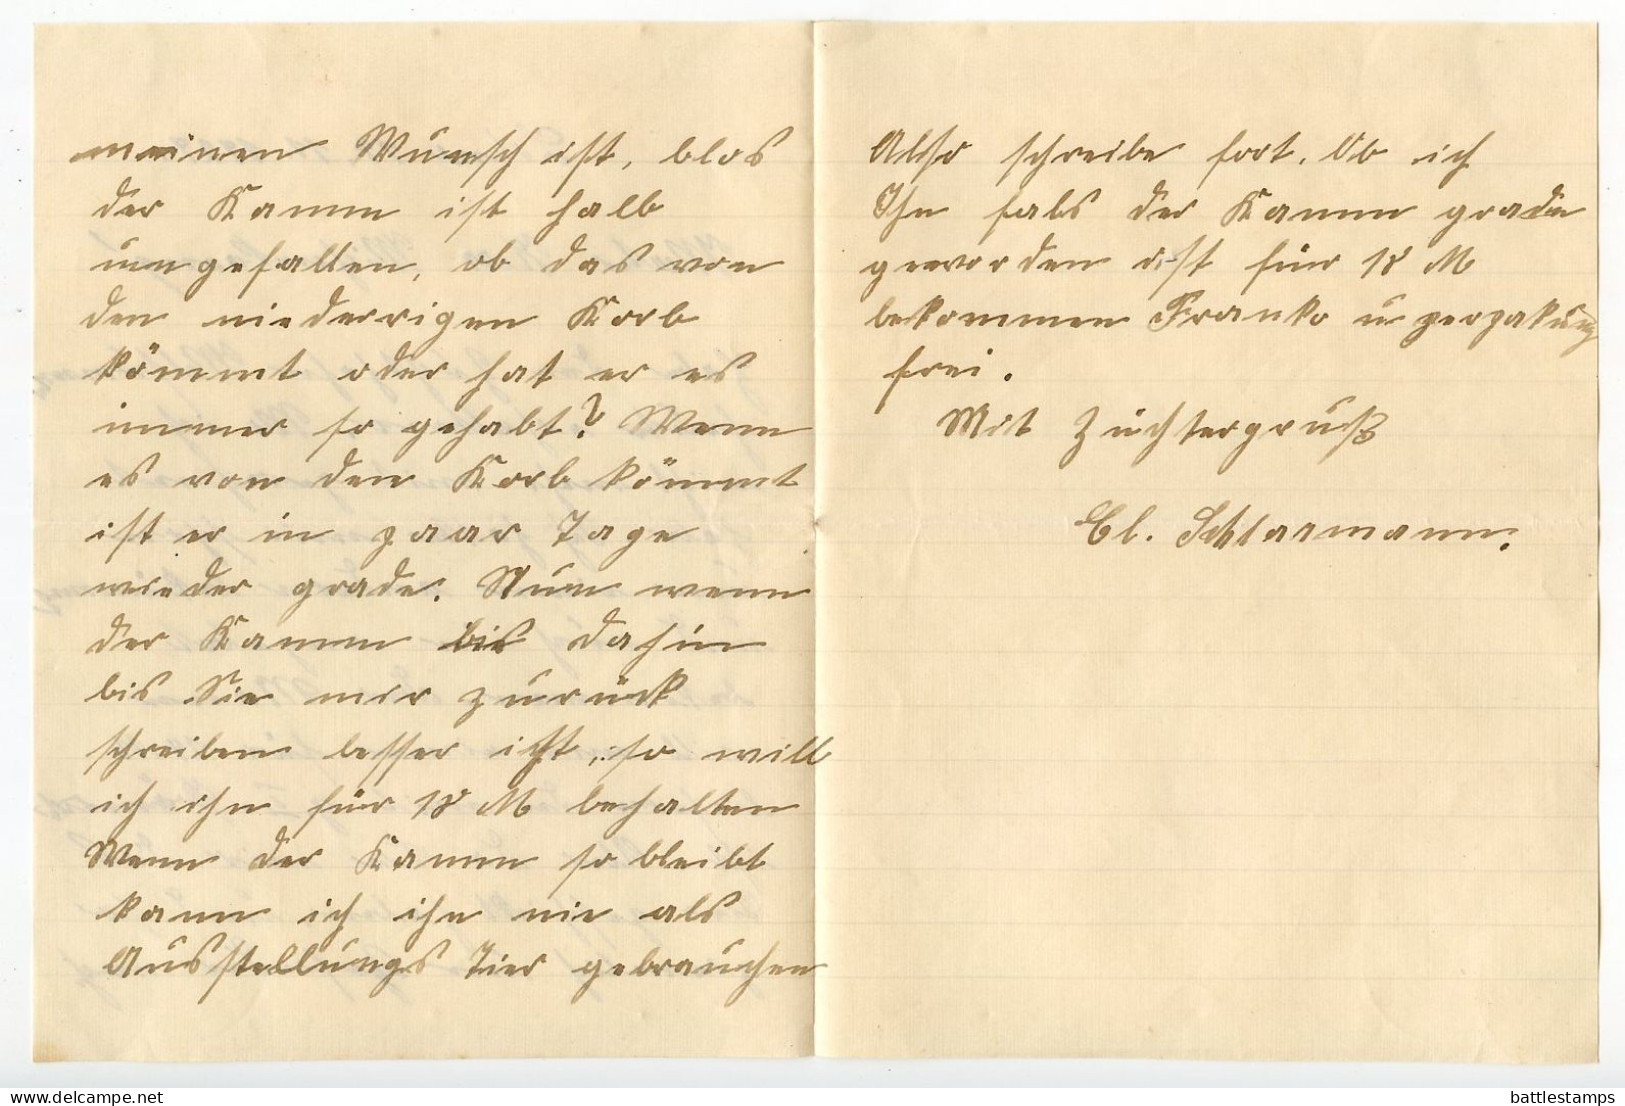 meinen Wunsch ist, blos
der Kamm ist halb
umgefallen, ob das von
den niederrigen Korb
kömmt oder hat er es
immer so gehabt? Wenn
es von den Korb kömmt
ist er in paar Tage
wieder grade. Nun wenn
der Kamm bis dahin
bis Sie mir zurück
schreiben besser ist, so will
ich ihn für 18 M behalten
Wenn der Kamm so bleibt
kann ich ihn nie als
Ausstellungs Tier gebrauchen
Also schreibe fort. Ob ich
Ihn fals der Kamm grade
geworden ist für 18 M
bekommen Franko u perpakung
frei.
Mit Züchtergruß
Cl. Schlarmann.
battlestamps
delcampe.net